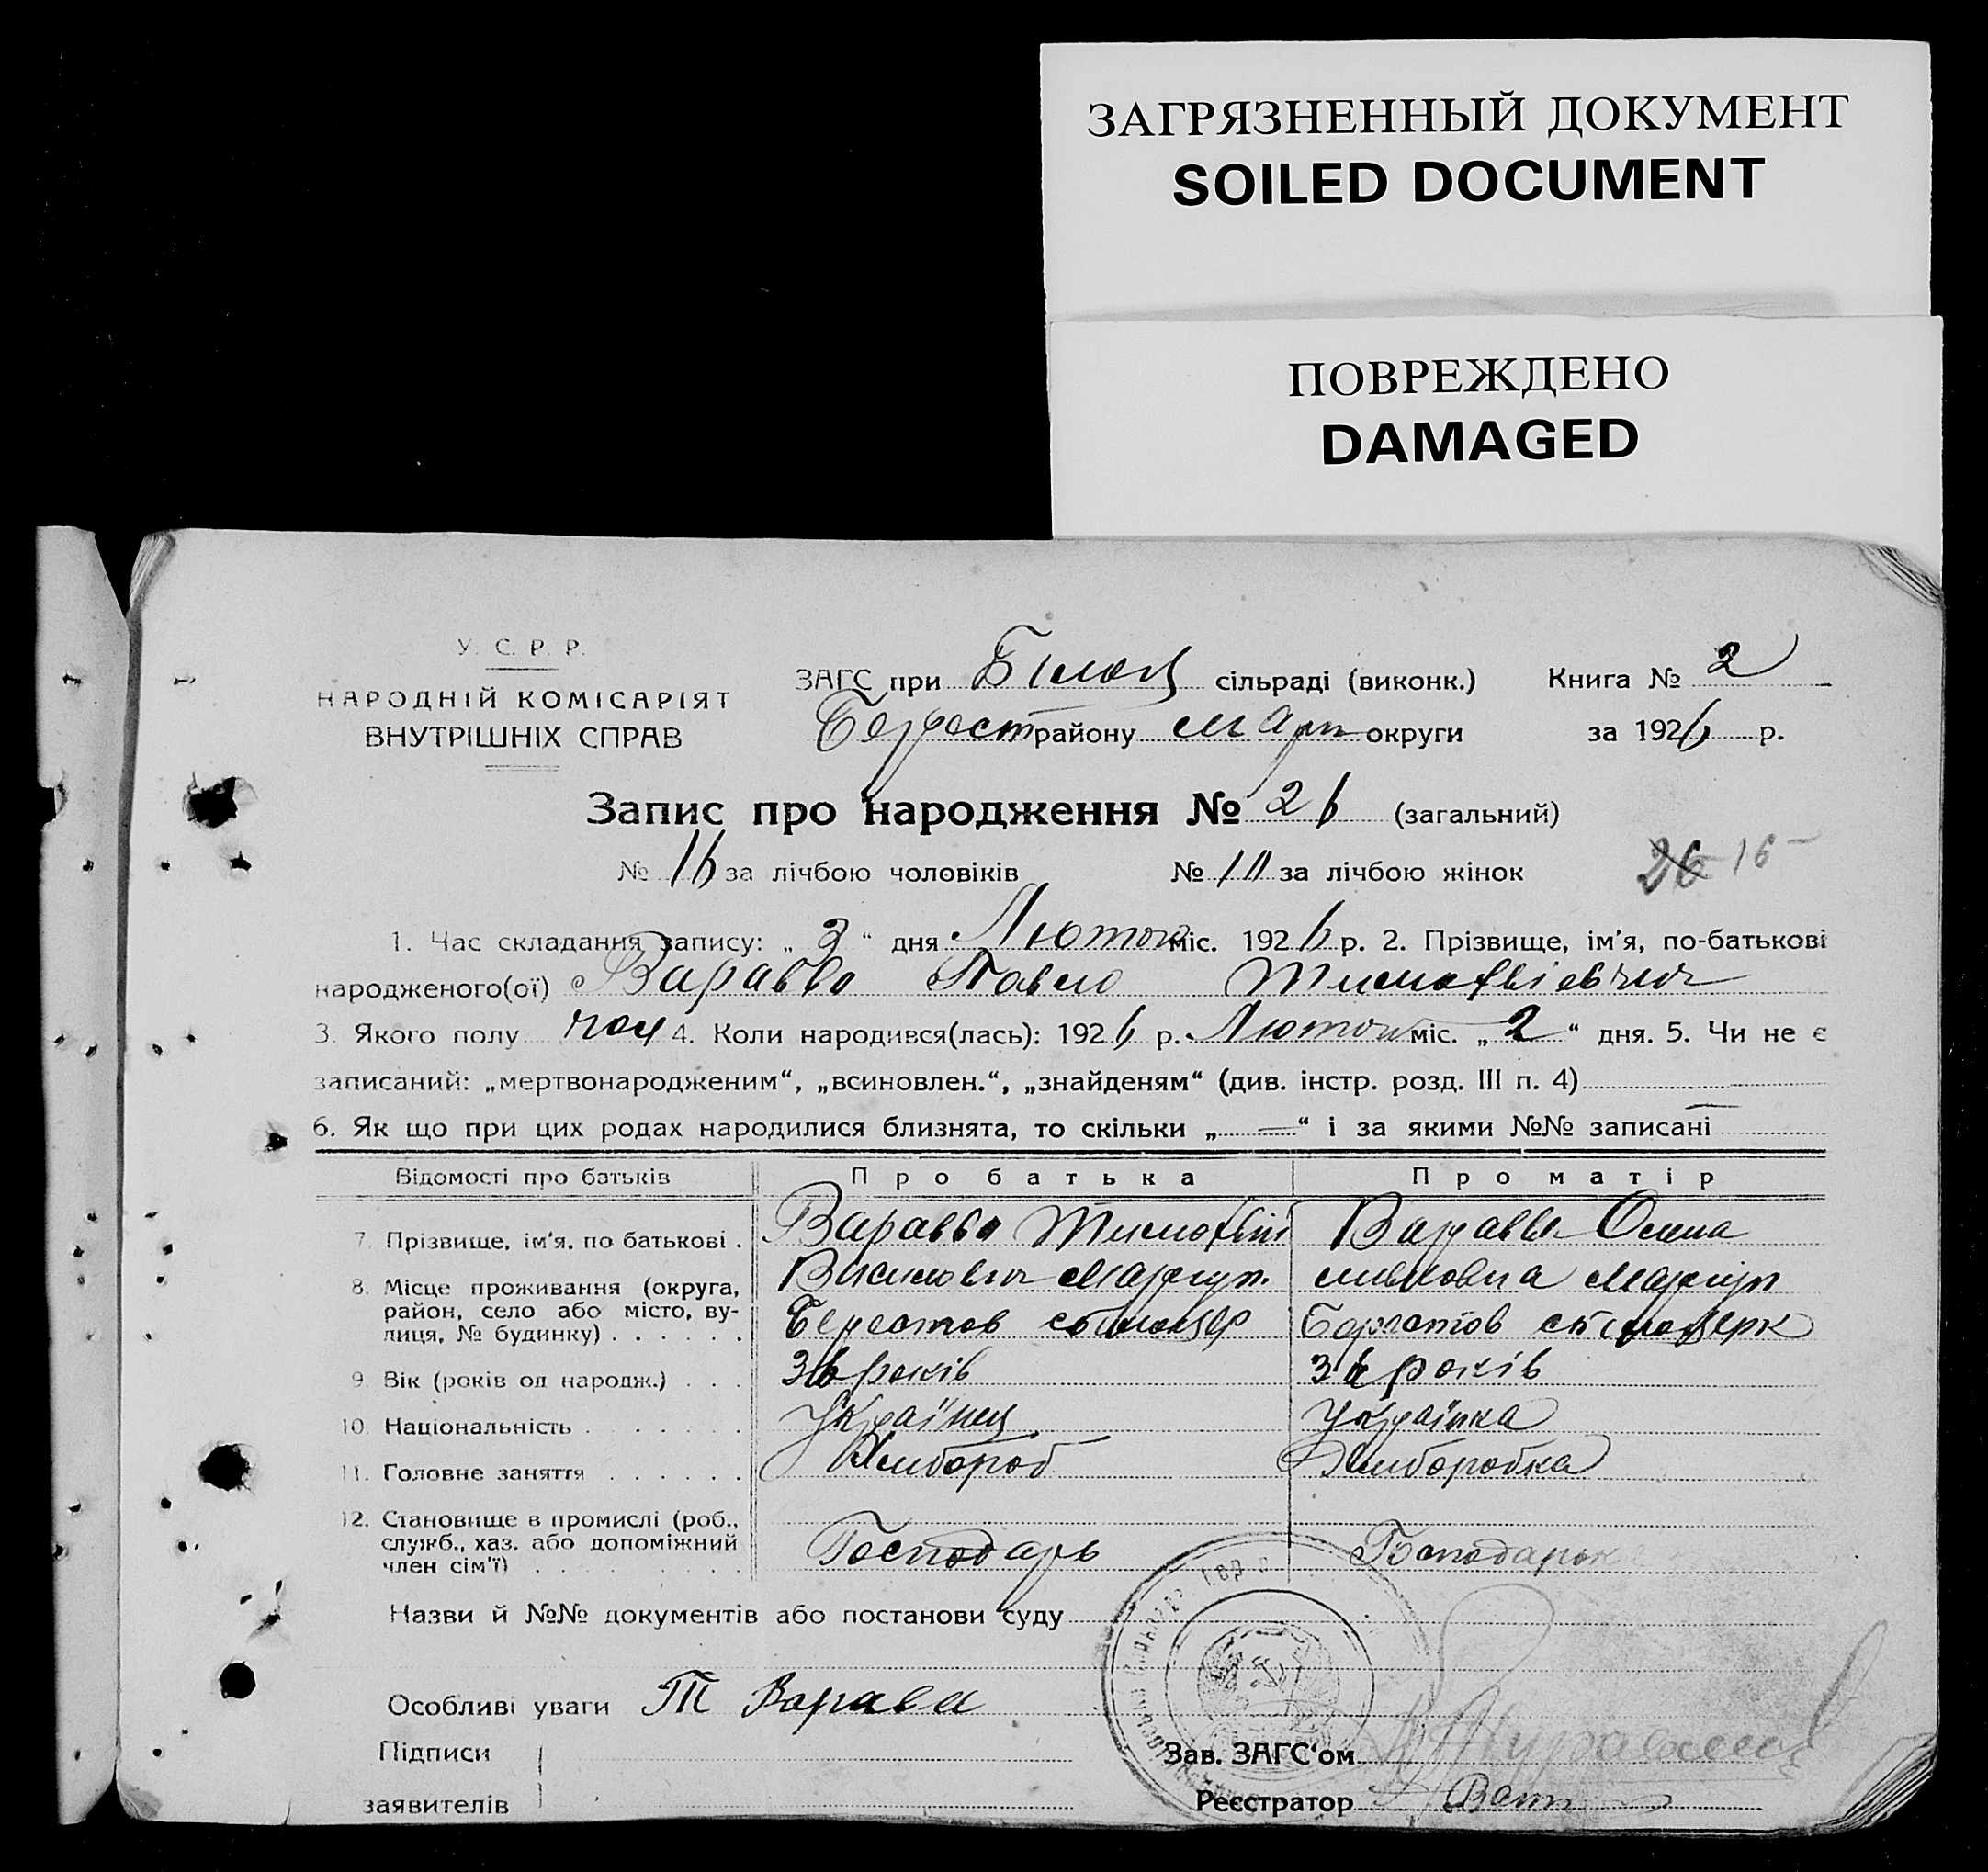 ЗАГРЯЗНЕННЫЙ ДОКУМЕНТ
SOILED DOCUMENT
ПОВРЕЖДЕНО
DAMAGED
У. С. Р. Р.
НАРОДНІЙ КОМІСАРІЯТ
ВНУТРІШНІХ СПРАВ
ЗАГС при сільраді (виконк.) Книга № 2
району округи за 1926 р.
Запис про народження № 26 (загальний)
№ 16 за лічбою чоловіків № 10 за лічбою жінок
26 16 -
1. Час складання запису: „ 3 “ дня Лютого міс. 1926 р. 2. Прізвище, ім'я, по-батькові
народженого(ої) Варавва Павло Тимофієвич
3. Якого полу чол 4. Коли народився(лась): 1926 р. Лютого міс. „ 2 “ дня. 5. Чи не є
записаний: „мертвонародженим“, „всиновлен.“, „знайденям“ (див. інстр. розд. III п. 4)
6. Як що при цих родах народилися близнята, то скільки „ — “ і за якими №№ записані —
Відомості про батьків Про батька Про матір
7. Прізвище, ім'я, по батькові . Варавва Тимофій Варавва Олена
8. Місце проживання (округа, район, село або місто, вулиця, № будинку) . . . . . . Маріуп. Маріуп
Берестов
9. Вік (років од народж.) . . . 36 років років
10. Національність . . . . . . . Українец Українка
11. Головне заняття . . . . . . Хлибороб Хлиборобка
12. Становище в промислі (роб., служб., хаз. або допоміжний член сім'ї) . . . . . . . . . Господарь Господарка
Назви й №№ документів або постанови суду
Особливі уваги Т Варава
Підписи
заявителів
Зав. ЗАГС'ом
Реєстратор